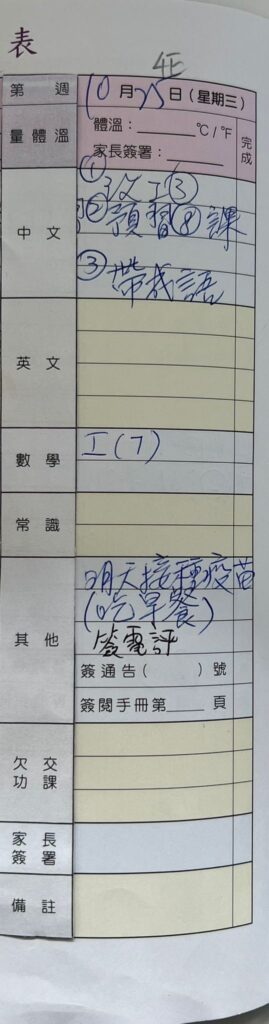 表
4E
第 週 10月25日（星期三）
量體溫 體溫：______°C / °F 完成
家長簽署：______
中文 ① 工③
② 預習⑧課
③ 帶成語
英文
數學 工(7)
常識
其他 明天接種疫苗
(吃早餐)
簽電評
簽通告（ ）號
簽閱手冊第____頁
欠交功課
家長簽署
備註